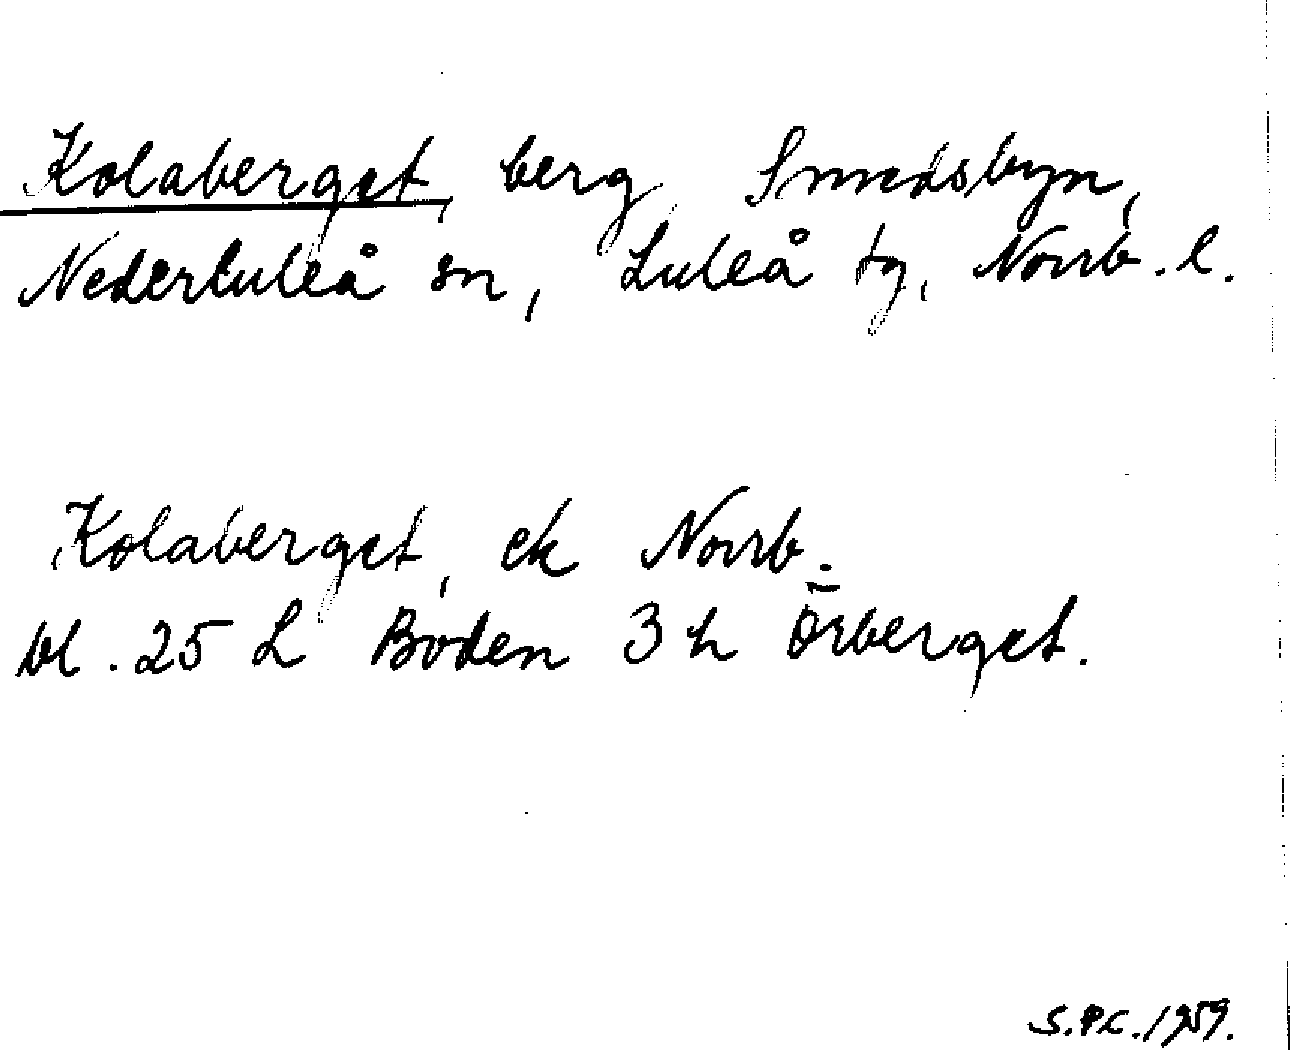 Kolaberget, berg, Smedsbyn,
Nederluleå sn, Luleå tg, Norrb. l.
Kolaberget, ek Norrb.
bl. 25 L Boden 3 h Örberget.
S.P.C. 1959.